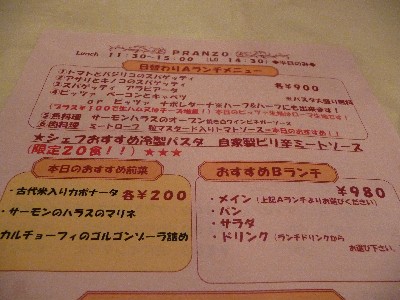 PRANZO
Lunch 11:30~15:00 (LO 14:30) ◆本日のみ◆
日替わりAランチメニュー
①トマトとバジリコのスパゲッティ
②アサリとキノコのスパゲッティ
③スパゲッティ アラビアータ
④ピッツァ ベーコンとキャベツ
¥850
※パスタ大盛り無料
or ピッツァ ナポレターナ※ハーフ&ハーフにも出来ます!
⑤魚料理 サーモンハラスのオーブン焼き白ワインビネガーソース
⑥肉料理 ミートローフ 粒マスタード入りトマトソース=本日のおすすめ!!
★シェフおすすめ冷製パスタ 自家製ピリ辛ミートソース
(限定20食!!) ★★★
本日のおすすめ前菜
・古代米入りカポナータ
各¥200
・サーモンのハラスのマリネ
カルチョーフィのゴルゴンゾーラ詰め
おすすめBランチ
¥980
・メイン (上記Aランチよりお選びください)
・パン
・サラダ
・ドリンク (ランチドリンクから
お選び下さい。